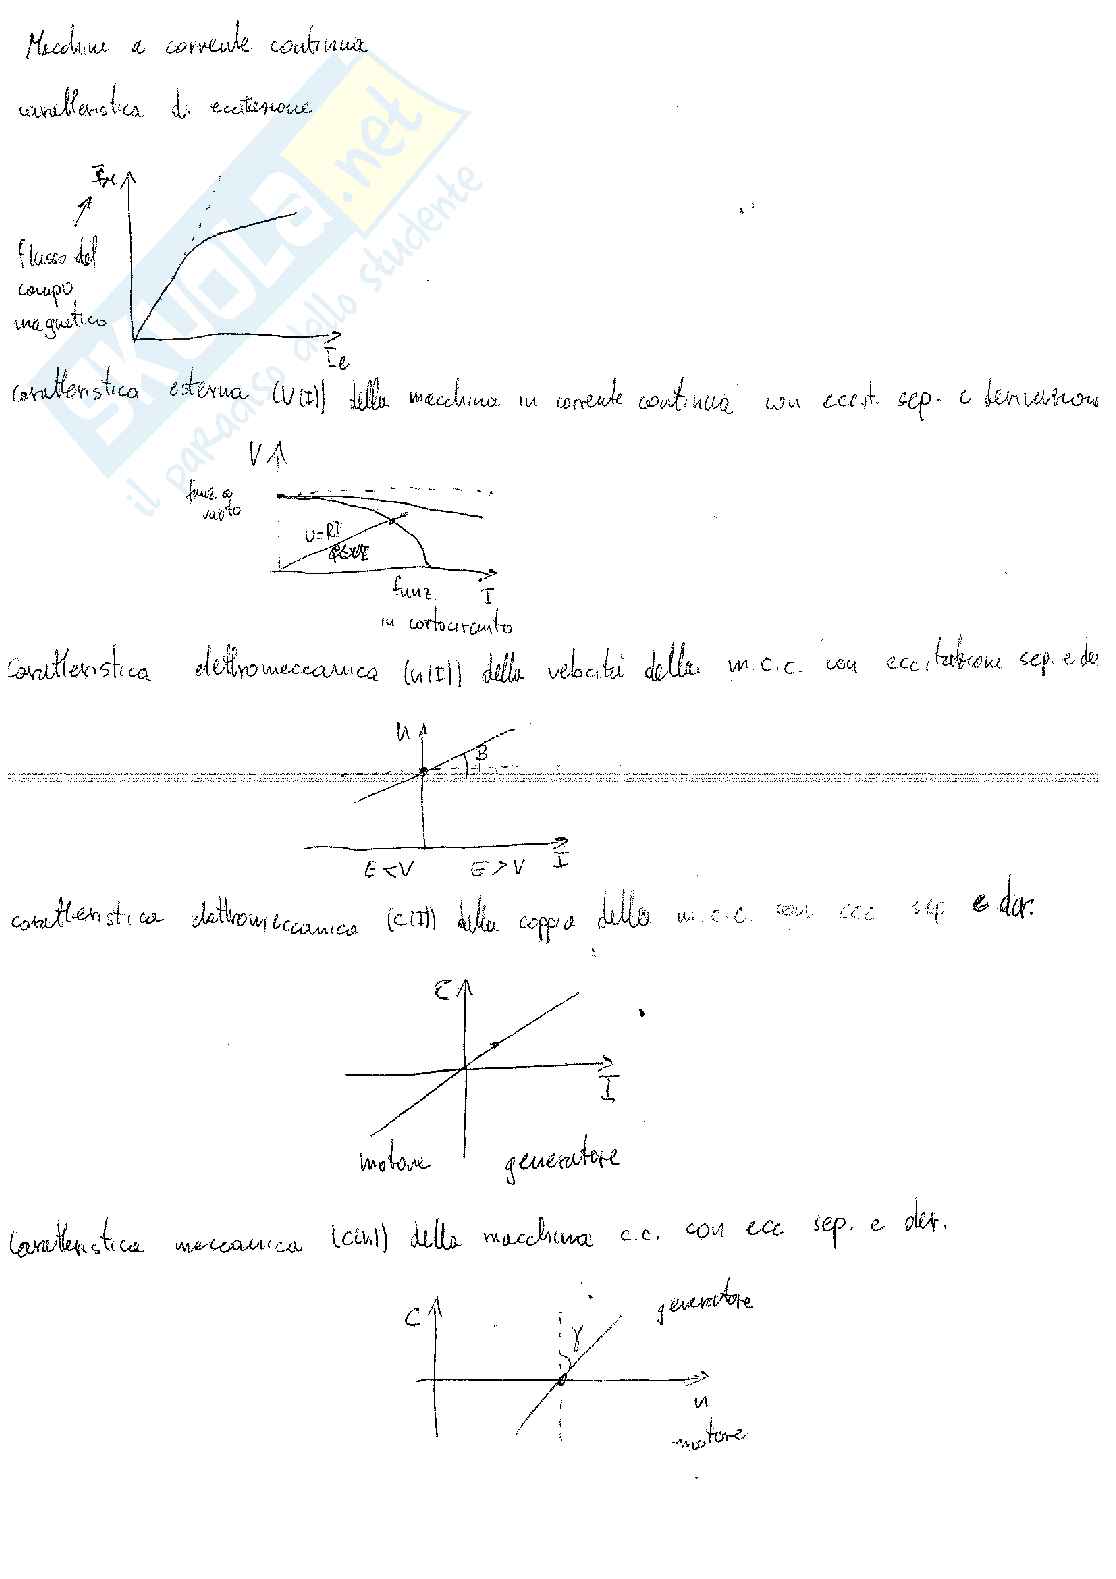 Macchine a corrente continua
caratteristica di eccitazione
flusso del
campo
magnetico
Ie
caratteristica esterna (V(I)) della macchina in corrente continua con eccit. sep. e derivazione
V
funz. a
vuoto
U=RI
I
funz.
in cortocircuito
Caratteristica elettromeccanica (n(I)) della velocità della m.c.c. con eccitazione sep. e der
n
β
E<V E>V I
caratteristica elettromeccanica (C(I)) della coppia della m.c.c. con ecc sep e der.
C
I
motore generatore
Caratteristica meccanica (C(n)) della macchina c.c. con ecc sep. e der.
generatore
C
γ
n
motore
SKUOLA.net
il paradiso dello studente